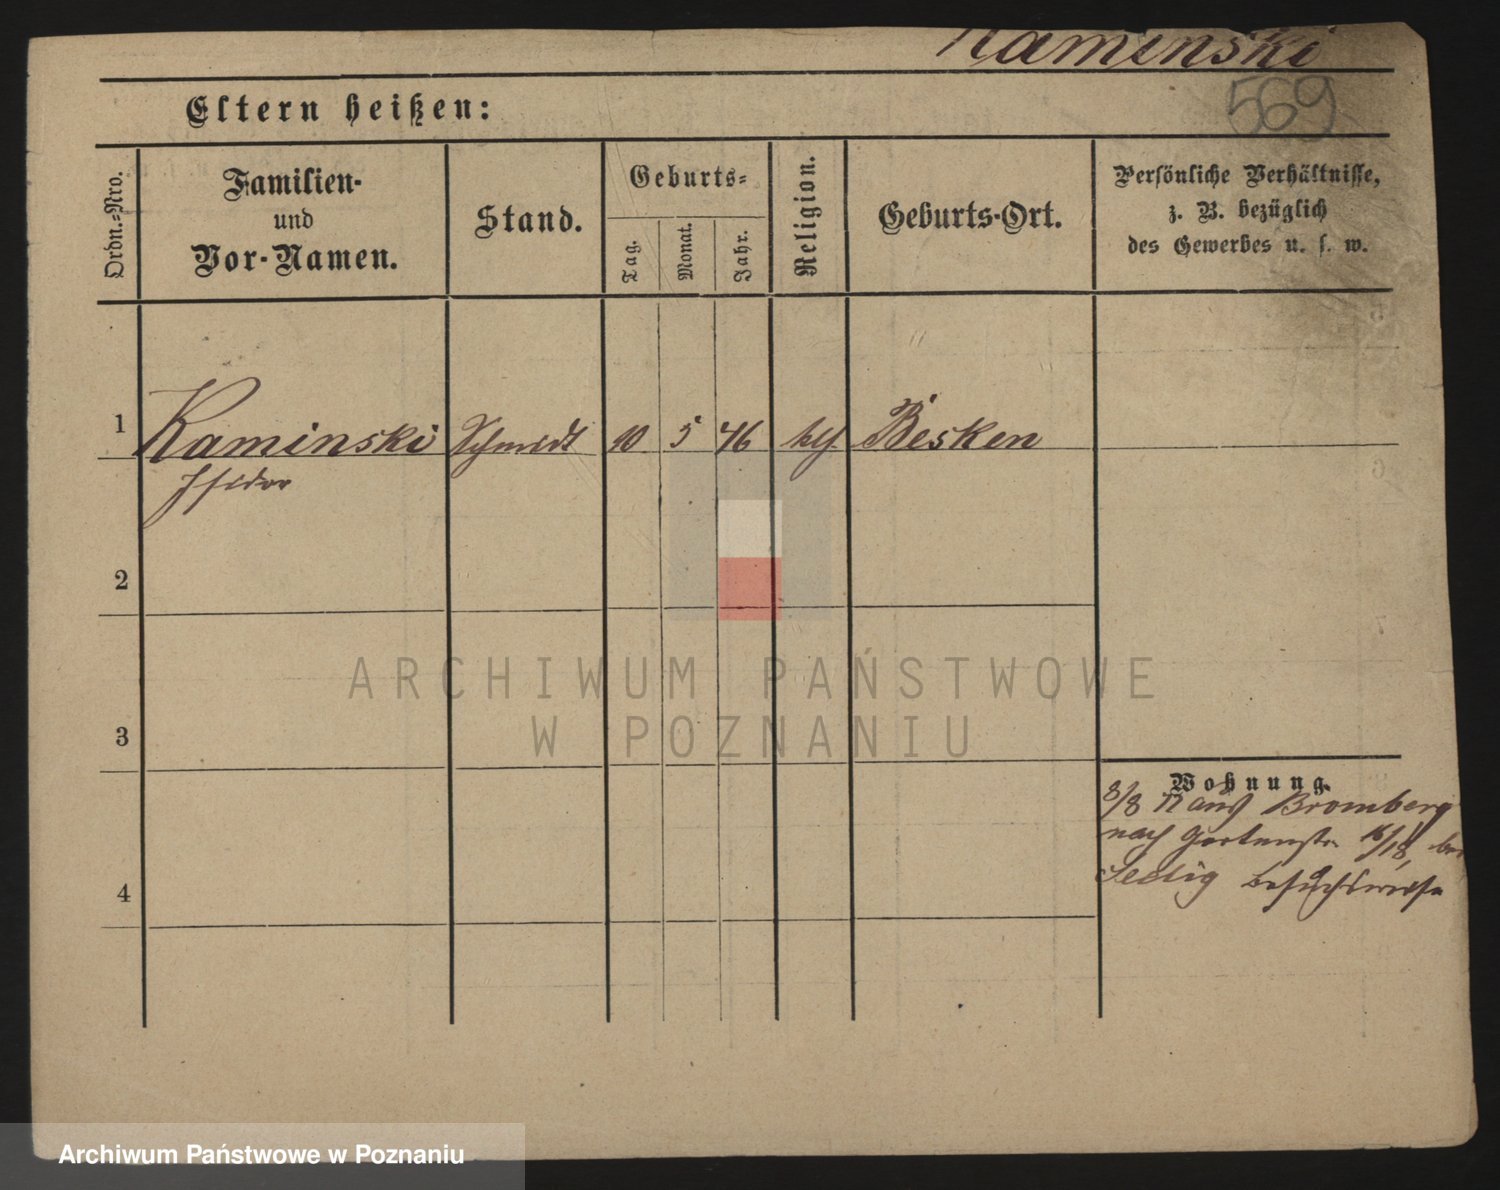 Kaminski
569
Eltern heißen:
Ordn.-Nro.
Familien-
und
Vor-Namen.
Stand.
Geburts-
Tag.
Monat.
Jahr.
Religion.
Geburts-Ort.
Persönliche Verhältnisse,
z. B. bezüglich
des Gewerbes u. s. w.
1 Kaminski Schmidt 10 5 76 Besken
Isidor
2
3
4
Wohnung.
8/8 aus Bromberg
nach Gartenstr.
ARCHIWUM PAŃSTWOWE
W POZNANIU
Archiwum Państwowe w Poznaniu